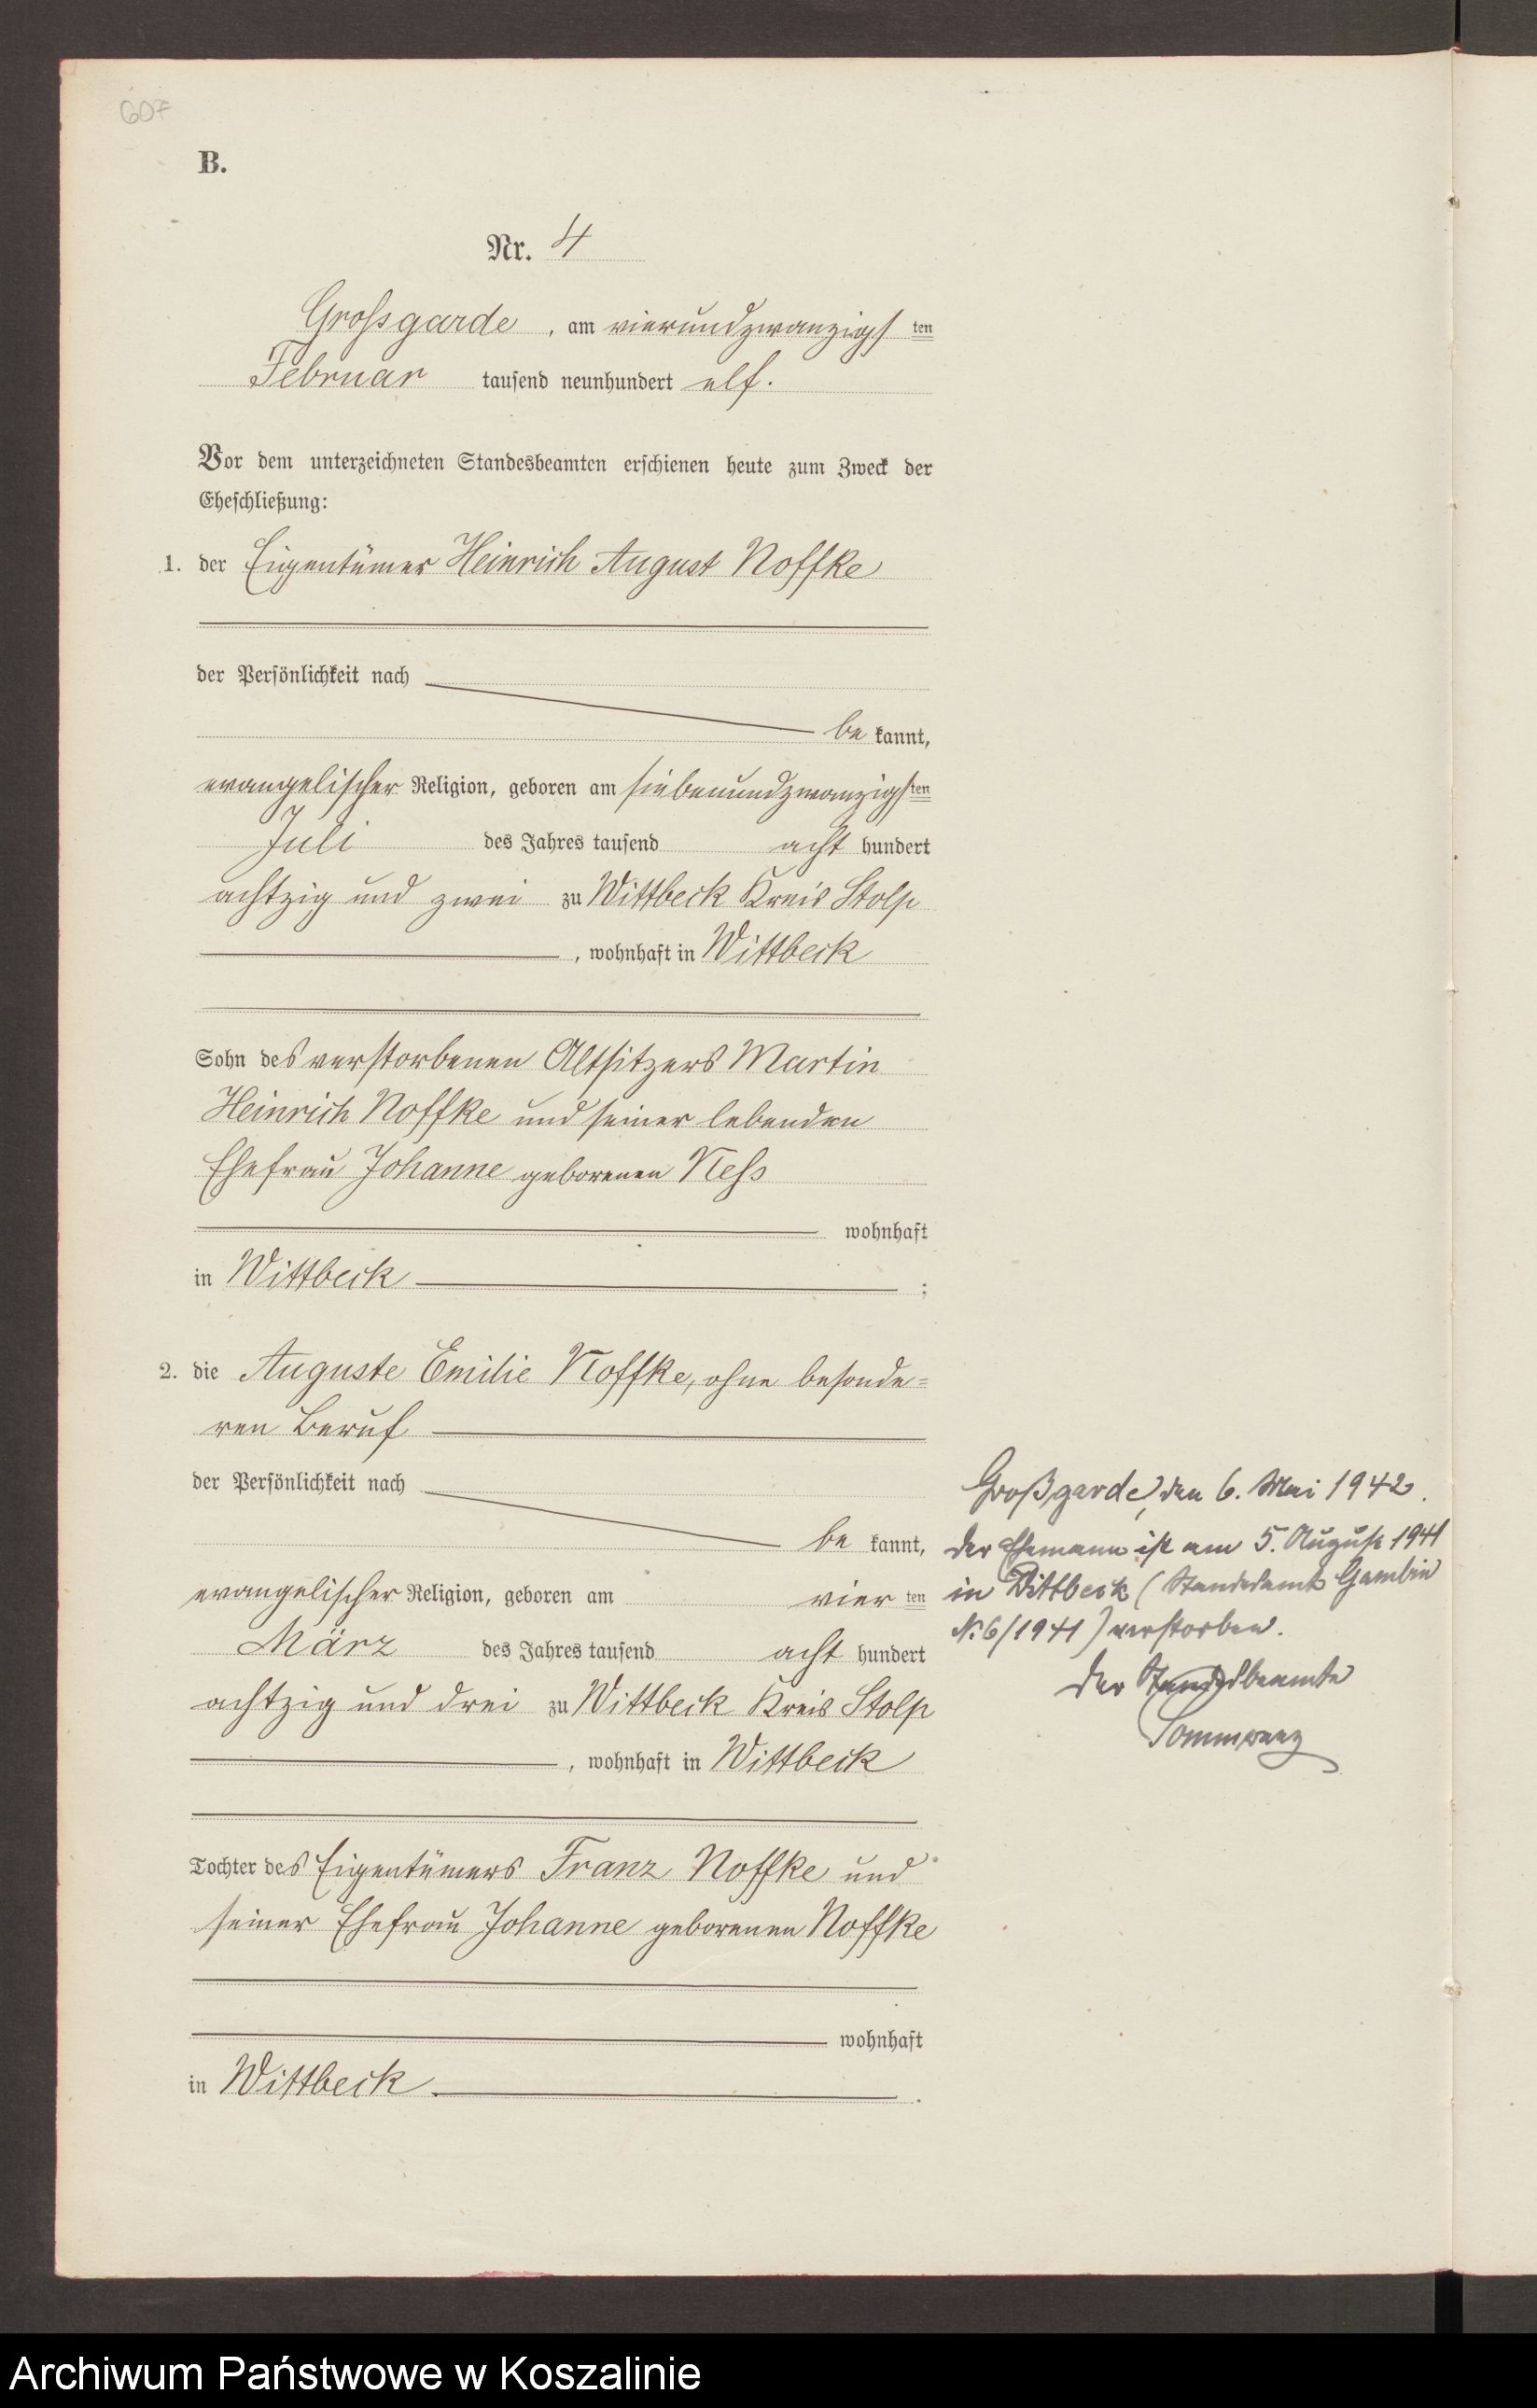 607
B.
Nr. 4
Grossgarde, am vierundzwanzigsten
Februar tausend neunhundert elf.
Vor dem unterzeichneten Standesbeamten erschienen heute zum Zweck der
Eheschließung:
1. der Eigentümer Heinrich August Noffke
der Persönlichkeit nach
be kannt,
evangelischer Religion, geboren am siebenundzwanzigsten
Juli des Jahres tausend acht hundert
achtzig und zwei zu Wittbeck Kreis Stolp
, wohnhaft in Wittbeck
Sohn des verstorbenen Altsitzers Martin
Heinrich Noffke und seiner lebenden
Ehefrau Johanne geborenen Ness
wohnhaft
in Wittbeck ;
2. die Auguste Emilie Noffke, ohne besonde=
ren Beruf
der Persönlichkeit nach
be kannt,
evangelischer Religion, geboren am vier ten
März des Jahres tausend acht hundert
achtzig und drei zu Wittbeck Kreis Stolp
, wohnhaft in Wittbeck
Tochter des Eigentümers Franz Noffke und
seiner Ehefrau Johanne geborenen Noffke
wohnhaft
in Wittbeck.
Großgarde, den 6. Mai 1942.
Der Ehemann ist am 5. August 1941
in Wittbeck (Standesamt Gambin
Nr. 6/1941) verstorben.
Der Standesbeamte
Archiwum Państwowe w Koszalinie